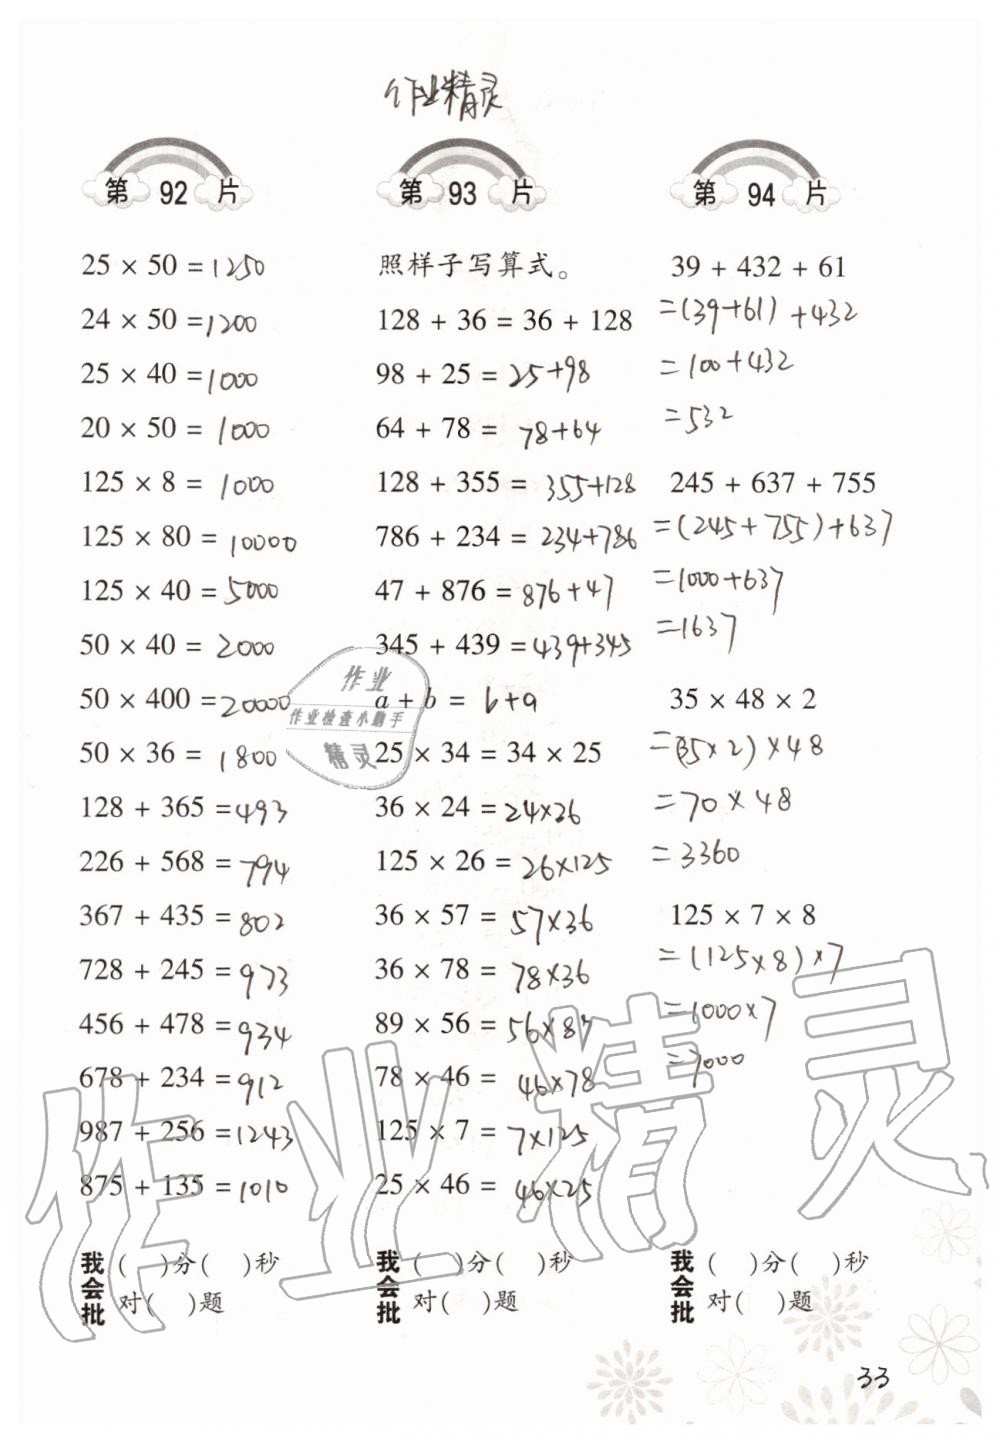 作业精灵
第 92 片
25 × 50 = 1250
24 × 50 = 1200
25 × 40 = 1000
20 × 50 = 1000
125 × 8 = 1000
125 × 80 = 10000
125 × 40 = 5000
50 × 40 = 2000
50 × 400 = 20000
50 × 36 = 1800
128 + 365 = 493
226 + 568 = 794
367 + 435 = 802
728 + 245 = 973
456 + 478 = 934
678 + 234 = 912
987 + 256 = 1243
875 + 135 = 1010
我会批
( )分( )秒
对( )题
第 93 片
照样子写算式。
128 + 36 = 36 + 128
98 + 25 = 25+98
64 + 78 = 78+64
128 + 355 = 355+128
786 + 234 = 234+786
47 + 876 = 876+47
345 + 439 = 439+345
a + b = b+a
25 × 34 = 34 × 25
36 × 24 = 24×26
125 × 26 = 26×125
36 × 57 = 57×36
36 × 78 = 78×36
89 × 56 = 56×89
78 × 46 = 46×78
125 × 7 = 7×125
25 × 46 = 46×25
我会批
( )分( )秒
对( )题
第 94 片
39 + 432 + 61
=(39+61)+432
=100+432
=532
245 + 637 + 755
=(245+755)+637
=1000+637
=1637
35 × 48 × 2
=(35×2)×48
=70×48
=3360
125 × 7 × 8
=(125×8)×7
=1000×7
=7000
我会批
( )分( )秒
对( )题
作业
作业检查小助手
精灵
作业精灵
33